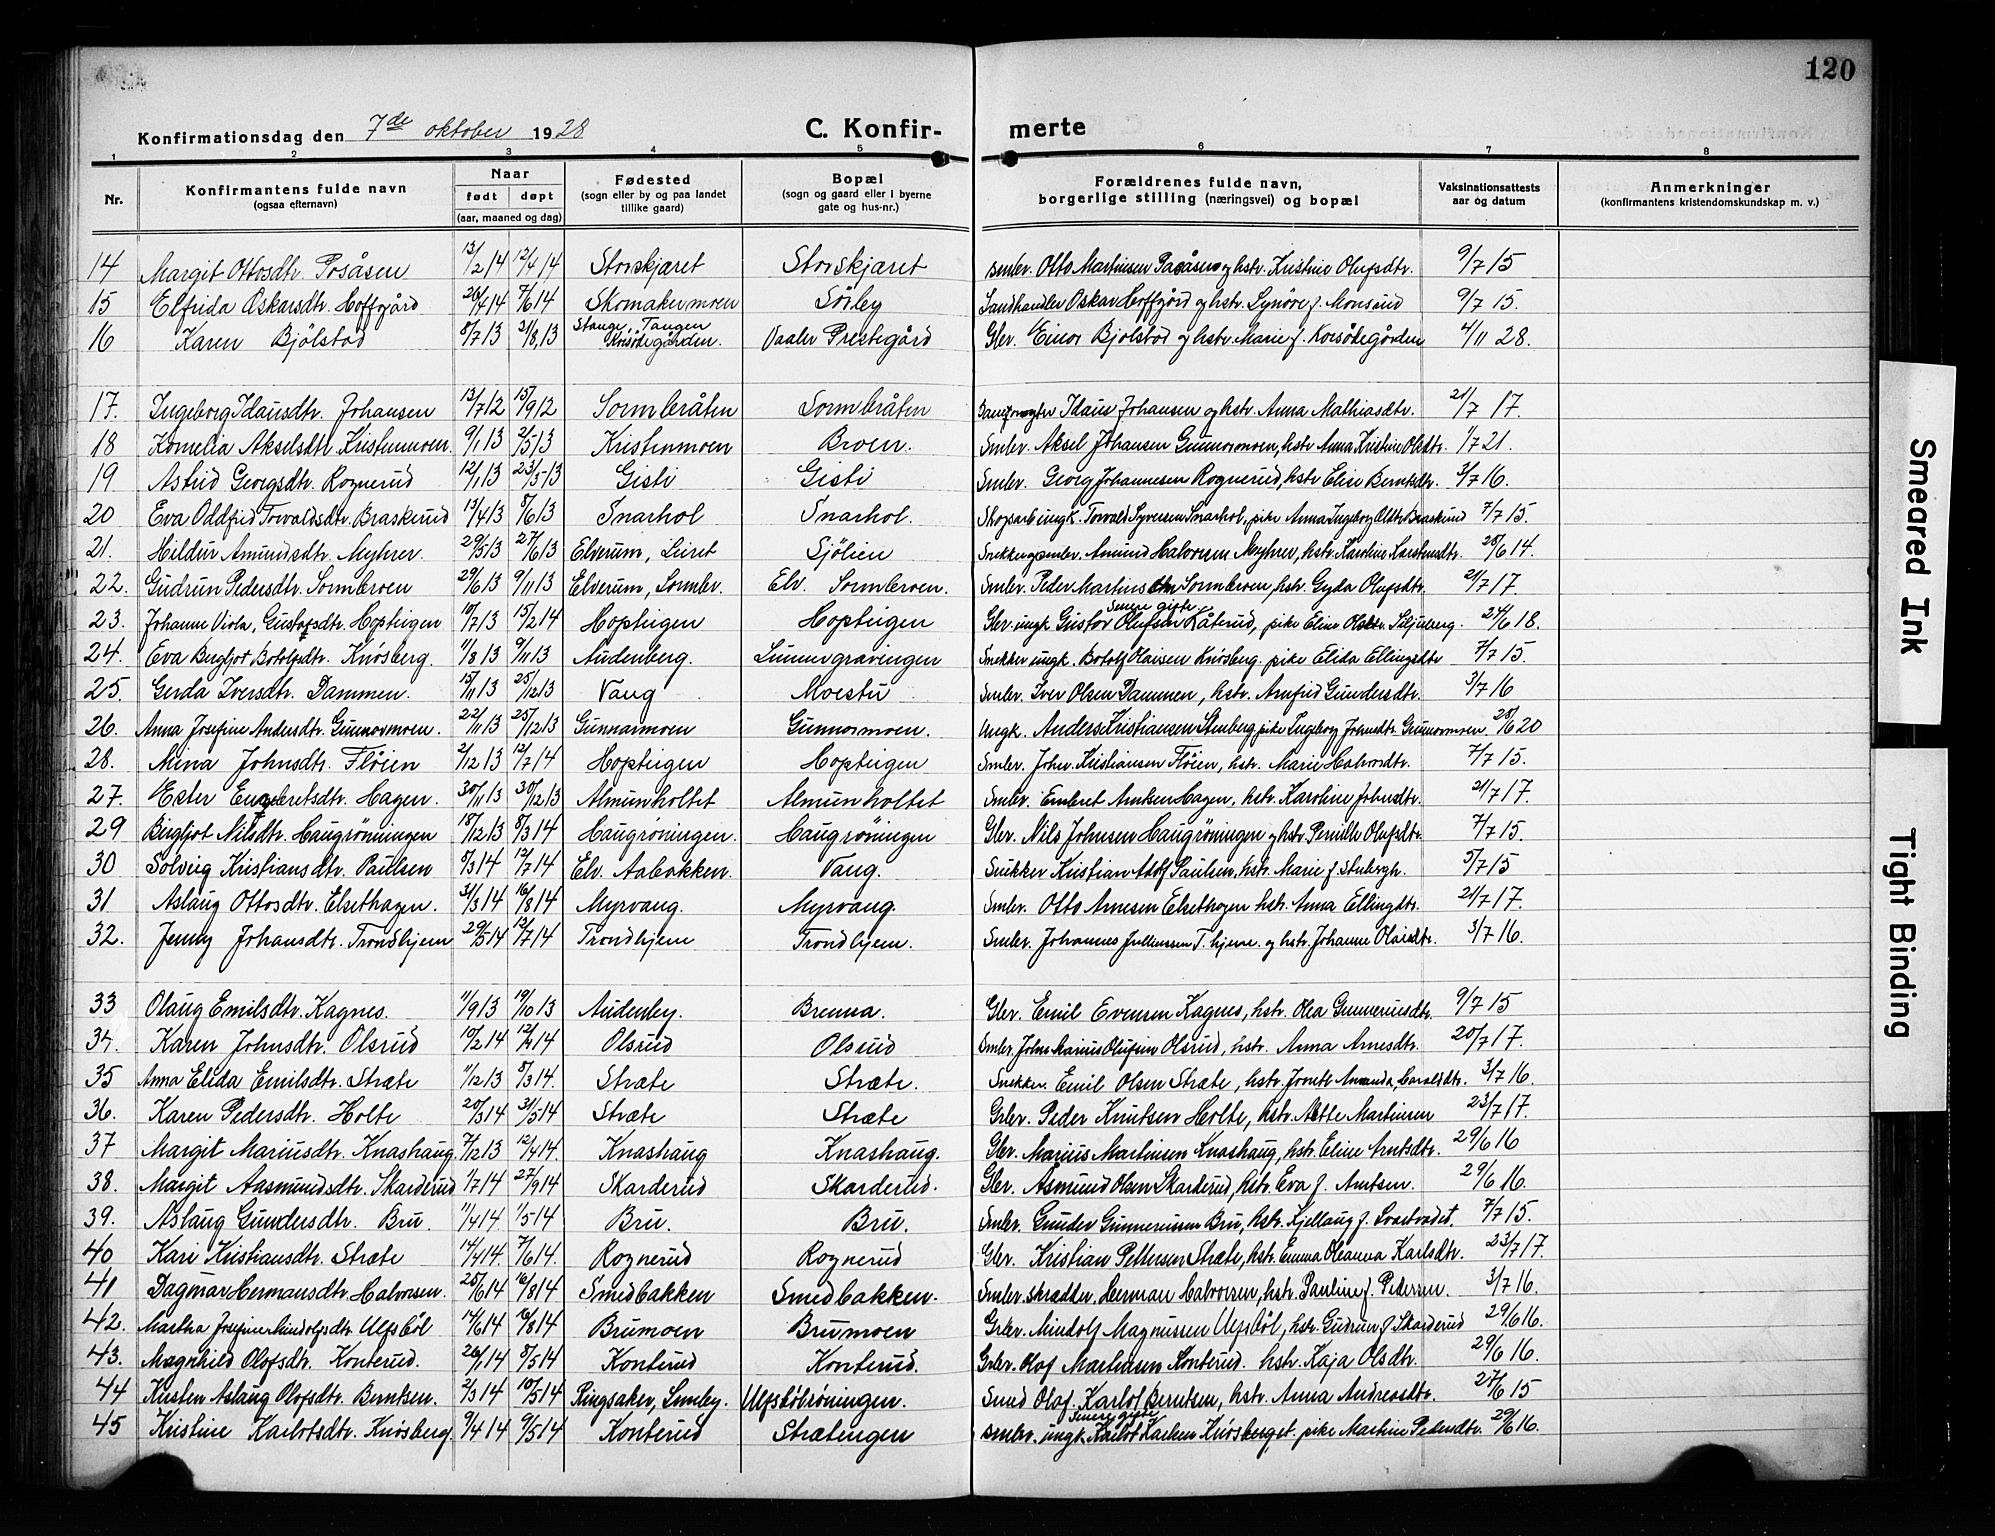 120
Konfirmationsdag den 7de oktober 1928 C. Konfir- merte
1 2 3 4 5 6 7 8
Nr. Konfirmantens fulde navn (ogsaa efternavn) Naar født døpt (aar, maaned og dag) Fødested (sogn eller by og paa landet tillike gaard) Bopæl (sogn og gaard eller i byerne gate og hus-nr.) Forældrenes fulde navn, borgerlige stilling (næringsvei) og bopæl Vaksinationsattests aar og datum Anmerkninger (konfirmantens kristendomskundskap m. v.)
14 Margit Ottosdtr. Posåsen 13/2 14 12/4 14 Storskjæret Storskjæret smbr. Otto Martinsen Posåsen og hstr. Kristine Olufsdtr. 9/7 15
15 Elfrida Oskarsdtr. Hoffgård 26/4 14 7/6 14 Skomakermoen Sörby Landhandler Oskar Hoffgård og hstr. Synöve f. Monsrud 9/7 15.
16 Karen Bjölstad 8/7 13 31/8 13 Stange, Tangen Korsödegården. Vaaler Prestegård Gbr. Einar Bjölstad og hstr. Marie f. Korsödegården 4/11 28.
17. Ingeborg Idausdtr. Johansen 13/7 12 15/9 12 Sormbråten Sormbråten Idaus Johansen og hstr. Anna Mathiasdtr. 21/7 17.
18 Kornelia Akselsdtr. Kristenmoen. 9/1 13 2/5 13 Kristenmoen Broen. Smbr. Aksel Johansen Gunnarmoen, hstr. Anna Kristine Olsdtr. 1/7 21.
19 Astrid Georgsdtr. Rognerud 12/1 13 23/5 13 Gisti Gisti Smbr. Georg Johannesen Rognerud, hstr. Elise Berntsdtr. 3/7 16.
20 Eva Oddfrid Torvaldsdtr. Braskerud 13/4 13 8/6 13 Snarhol Snarhol. Skogsarb. ungk. Torvald Syversen Snarhol, pike Anna Ingeborg Olsdtr. Braskerud 7/7 15.
21. Hildur Amundsdtr. Myhrer. 29/5 13 27/6 13 Elverum, Leiret Sjölien Snekker og smbr. Amund Halvorsen Myhrer, hstr. Karoline Larsdtr. 28/6 14.
22. Gudrun Pedersdtr. Sormbroen 29/6 13 9/11 13 Elverum, Sormbr. Elv. Sormbroen. Smbr. Peder Martinsen Sormbroen, hstr. Gyda Olufsdtr. 21/7 17.
23. Johanne Viola, Gustafsdtr. Hoptrigen 10/7 13 15/2 14 Hoptrigen Hoptrigen Gbr. ungk. Gustav Olufsen Kåterud, Senere gifte. pike Eline Olsdtr. Siljuberg. 24/6 18.
24. Eva Bergljot Botolfsdtr. Knösberg. 11/8 13 9/11 13 Audenberg. Lunnergravingen Snekker ungk. Botolf Olaisen Knösberg. pike Elida Ellingsdtr 7/7 15.
25. Gerda Iversdtr. Dammen. 15/11 13 25/12 13 Vang Moestu Smbr. Iver Olsen Dammen, hstr. Arnfrid Gundersdtr. 3/7 16
26. Anna Josefine Andersdtr. Gunnarmoen. 22/11 13 25/12 13 Gunnarmoen Gunnarmoen. Ungk. Anders Kristiansen Stenberg pike Ingeborg Johnsdtr. Gunnarmoen 28/6 20
28. Mina Johnsdtr. Flöien 2/12 13 12/7 14 Hoptrigen Hoptrigen Smbr. John Kristiansen Flöien, hstr. Marie Halvorsdtr. 7/7 15.
27. Ester Engebretsdtr. Hagen. 30/11 13 30/12 13 Almunholtet Almunholtet Smbr. Embret Arntsen Hagen, hstr. Karoline Johnsdtr. 21/7 17.
29 Bergljot Nilsdtr. Haugröningen 18/12 13 8/3 14 Haugröningen. Haugröningen Gbr. Nils Johnsen Haugröningen og hstr. Pernille Olufsdtr. 7/7 15.
30 Solveig Kristiansdtr. Paulsen 8/3 14 12/7 14 Elv. Aabakken. Vang. Snekker Kristian Adolf Paulsen, hstr. Marie f. Stenbergh. 5/7 15
31 Aslaug Ottosdtr. Elsethagen. 31/3 14 16/8 14 Myrvang. Myrvang. Smbr. Otto Arnesen Elsethagen hstr. Anna Ellingsdtr. 21/7 17.
32. Jenny Johansdtr. Trondhjem 29/5 14 12/7 14 Trondhjem Trondhjem. Smbr. Johannes Juliussen T. hjem. og hstr. Johanne Olaisdtr. 3/7 16.
33 Olaug Emilsdtr. Kagnes. 11/9 13 19/10 13 Audenby. Brenna. Gbr. Emil Evensen Kagnes, hstr. Olea Gunneriusdtr. 9/7 15
34. Karen Johnsdtr. Olsrud 10/2 14 12/4 14 Olsrud Olsrud Smbr. John Marius Olufsen Olsrud, hstr. Anna Arnesdtr. 20/7 17.
35 Anna Elida Emilsdtr. Stræte 11/12 13 8/3 14. Stræte Stræte. Snekker. Emil Olsen Stræte, hstr. Amanda, Haraldsdtr. 3/7 16.
36. Karen Pedersdtr. Holte 20/3 14 31/5 14 Stræte Stræte Grbr. Peder Knutsen Holte, hstr. Martinsen 23/7 17.
37 Margit Mariusdtr. Knashaug. 7/12 13 12/4 14. Knashaug Knashaug. Gbr. Marius Martinsen Knashaug, hstr. Eline Arntsdtr. 29/6 16
38. Margit Aasmundsdtr. Skarderud 1/7 14 27/9 14 Skarderud Skarderud. Gbr. Åsmund Olsen Skarderud, hstr. Eva f. Arntsen. 29/6 16.
39. Aslaug Gundersdtr. Bru. 11/4 14 1/5 14 Bru. Bru. Smbr. Gunder Gunneriusen Bru, hstr. Kjellaug f. Svartvadet. 7/7 15.
40 Kari Kristiansdtr. Stræte 14/4 14. 7/6 14. Rognerud Rognerud Gbr. Kristian Pettersen Stræte, hstr. Emma Oleanna Karlsdtr. 23/7 17.
41 Dagmar Hermansdtr. Halvorsen. 25/6 14 16/8 14 Smedbakken Smedbakken. Smbr. skrædder. Herman Halvorsen, hstr. Pauline f. Pedersen. 3/7 16.
42. Martha Josefine Mindolfsdtr. Ulfsböl 14/6 14 16/8 14 Brumoen Brumoen Grbr. Mindolf Magnussen Ulfsböl, hstr. Gudrun f. Skarderud 29/6 16.
43. Magnhild Olofsdtr. Konterud. 26/1 14 8/5 14 Konterud Konterud. Grbr. Olof Martinsen Konterud. hstr. Kaja Olsdtr. 29/6 16.
44 Kirsten Aslaug Olofsdtr. Berntsen. 2/3 14 10/5 14 Ringsaker, Lunby. Ulfsbölröningen. Smed Olof Karlot Berntsen, hstr. Anna Andreasdtr. 27/6 15
45 Kristine Karlotsdtr. Knösberg. 9/4 14 9/5 14 Konterud Strætengen smbr. ungk. Karlot Karlsen Knösberget. Senere gifte pike Martine Pedersdtr. 29/6 16.
Smeared Ink
Tight Binding